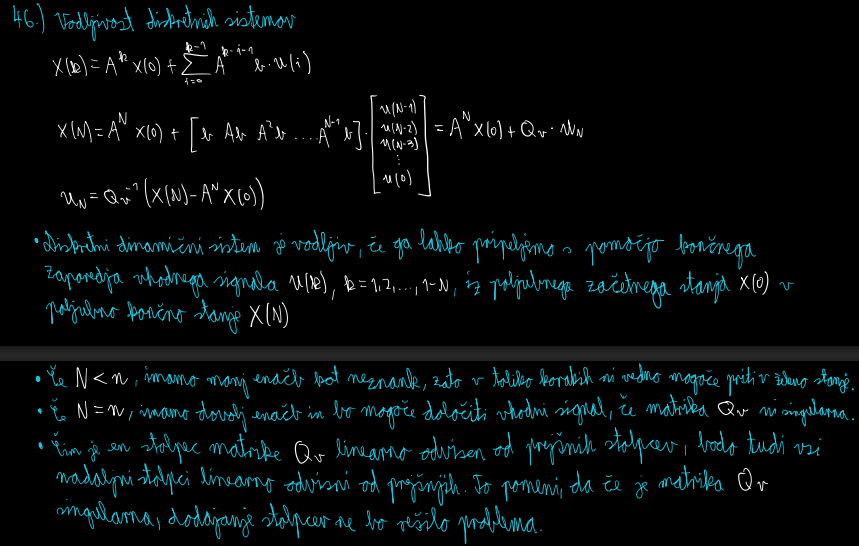 46.) Vodljivost diskretnih sistemov
X(k) = A^k X(0) + \sum_{i=0}^{k-1} A^{k-i-1} b · u(i)
X(N) = A^N X(0) + [b Ab A²b .... A^{N-1} b] · [u(N-1) u(N-2) u(N-3) ⋮ u(0)] = A^N X(0) + Q_v · u_N
u_N = Q_v^{-1} (X(N) - A^N X(0))
• Diskretni dinamični sistem je vodljiv, če ga lahko pripeljemo s pomočjo končnega
zaporedja vhodnega signala u(k), k = 1, 2, ..., 1-N, iz poljubnega začetnega stanja X(0) v
poljubno končno stanje X(N)
• Če N < n, imamo manj enačb kot neznank, zato v toliko korakih ni vedno mogoče priti v želeno stanje.
• Če N = n, imamo dovolj enačb in bo mogoče določiti vhodni signal, če matrika Q_v ni singularna.
• Čim je en stolpec matrike Q_v linearno odvisen od prejšnih stolpcev, bodo tudi vsi
nadaljni stolpci linearno odvisni od prejšnjih. To pomeni, da če je matrika Q_v
singularna, dodajanje stolpcev ne bo rešilo problema.